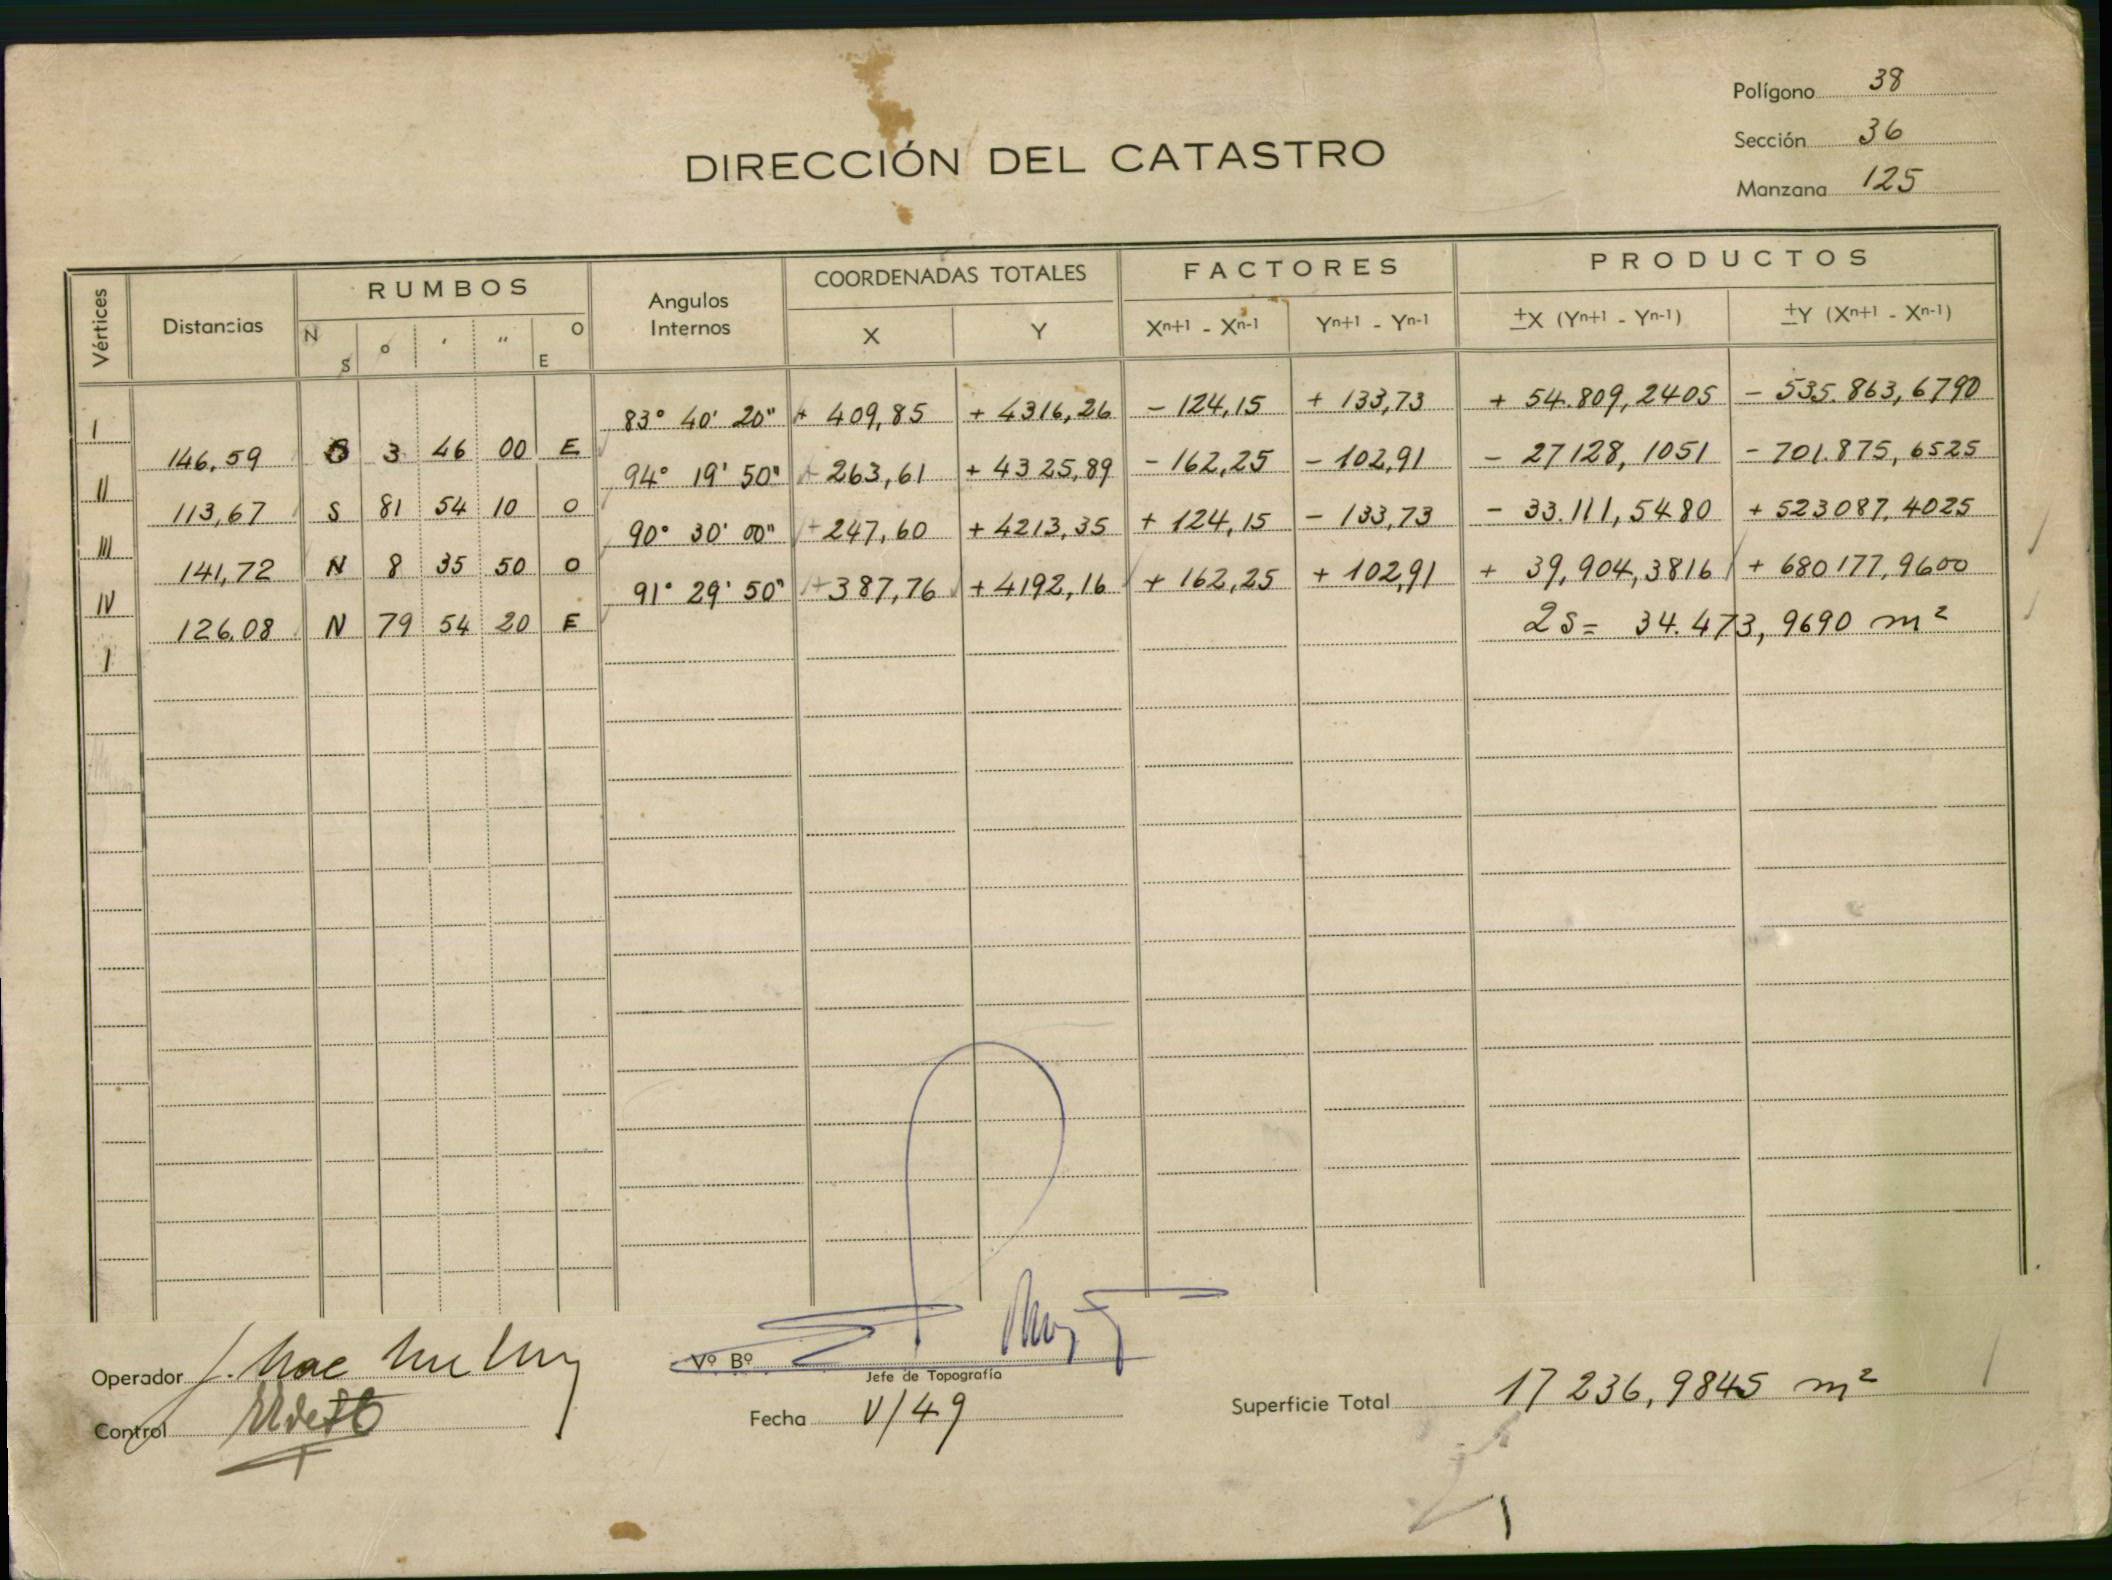 Polígono 38
Sección 36
Manzana 125
DIRECCIÓN DEL CATASTRO
Vértices Distancias RUMBOS Angulos Internos COORDENADAS TOTALES FACTORES PRODUCTOS
N S ° ' " O E X Y Xn+1 - Xn-1 Yn+1 - Yn-1 ±X (Yn+1 - Yn-1) ±Y (Xn+1 - Xn-1)
I 83° 40' 20" + 409,85 + 4316,26 - 124,15 + 133,73 + 54.809,2405 - 535.863,6790
146,59 3 46 00 E
II 94° 19' 50" + 263,61 + 4325,89 - 162,25 - 102,91 - 27128,1051 - 701.875,6525
113,67 S 81 54 10 O
III 90° 30' 00" + 247,60 + 4213,35 + 124,15 - 133,73 - 33.111,5480 + 523087,4025
141,72 N 8 35 50 O
IV 91° 29' 50" + 387,76 + 4192,16 + 162,25 + 102,91 + 39,904,3816 + 680177,9600
126,08 N 79 54 20 E
I 2S = 34.473,9690 m²
Operador
Control
Vº Bº
Jefe de Topografía
Fecha V/49
Superficie Total 17236,9845 m²